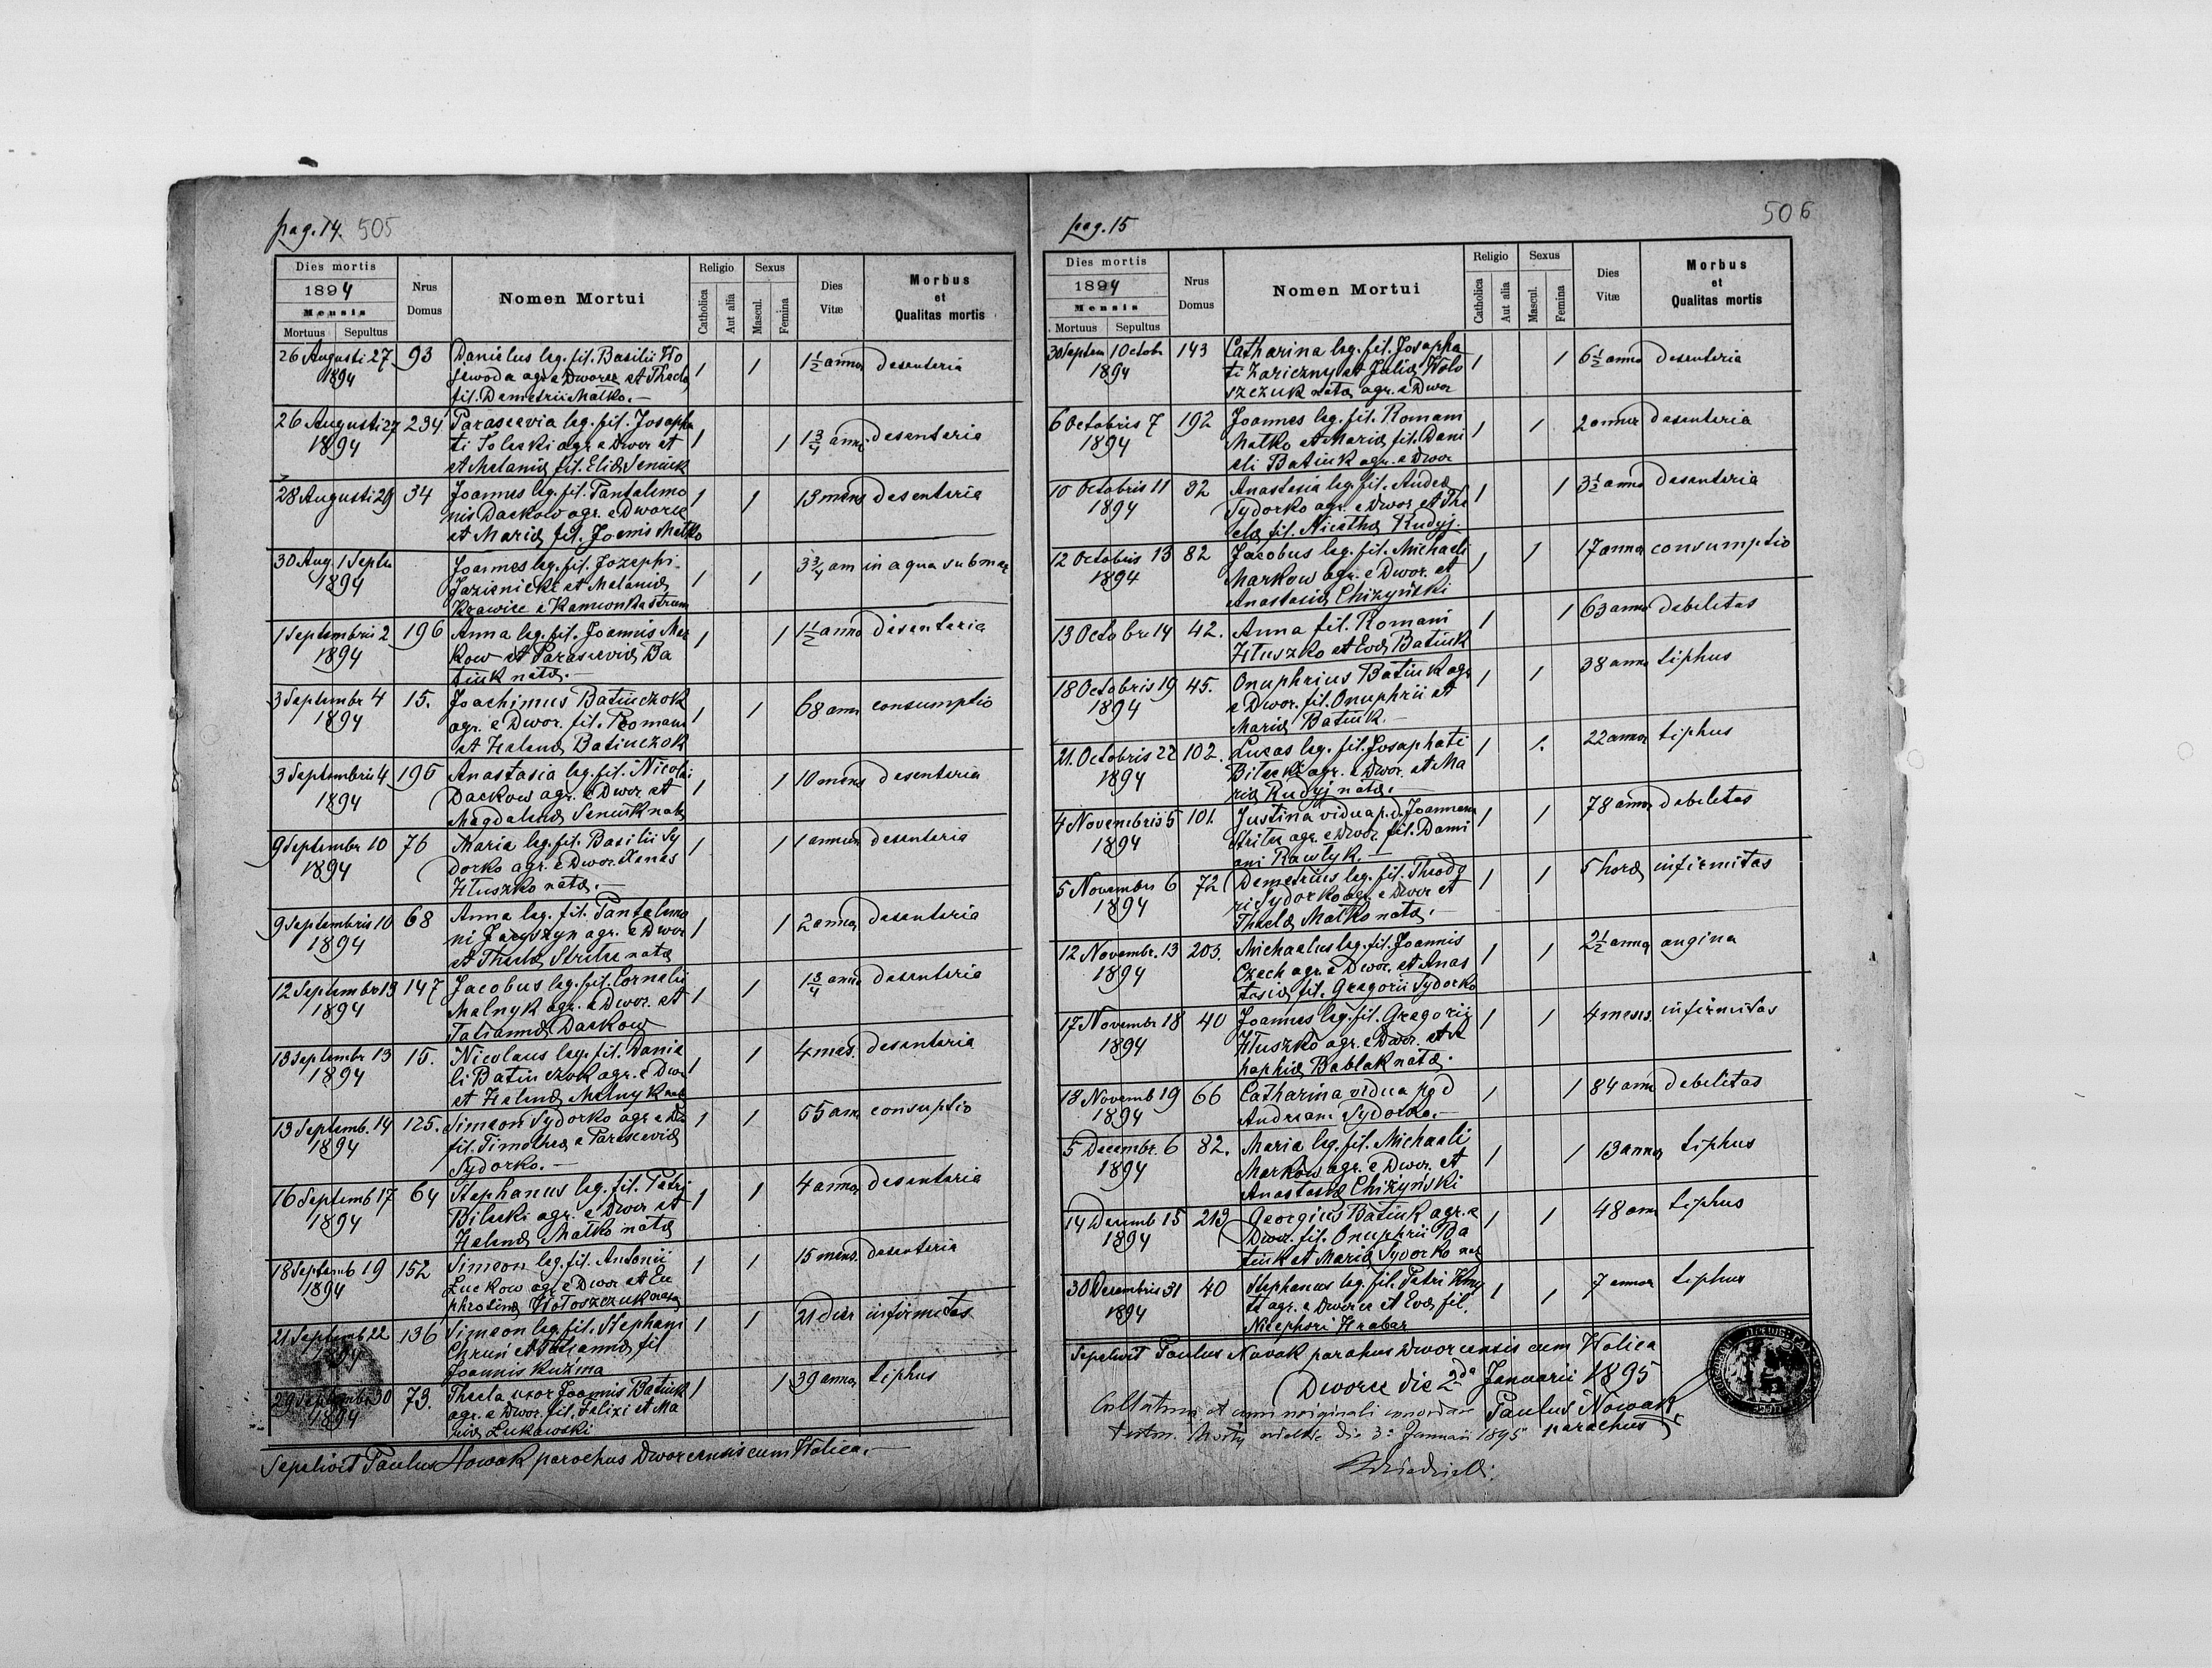 pag. 14. 505
Dies mortis
1894
Mensis
Mortuus Sepultus
Nrus Domus
Nomen Mortui
Religio
Catholica
Aut alia
Sexus
Mascul.
Femina
Dies Vitæ
Morbus
et
Qualitas mortis
26 Augusti 27 93 Danielus leg. fil. Basilii Wo 1 1 1½ annor desenteria
1894 jewoda agr. e Dworce et Thecla
fil. Demetrii Matko.—
26 Augusti 27 234 Parascevia leg. fil. Josapha 1 1 1¾ anno desenteria
1894 ti Soleski agr. e Dwor et
et Melaniæ fil. Eliæ Seniuk
28 Augusti 29 34 Joannes leg. fil. Pantalemo 1 1 13 mens desenteria
nis Dackow agr. e Dworce
et Mariæ fil. Joannis Matko
30 Aug. 1 Septbr Joannes leg. fil. Jozephi 1 1 3¾ am in aqua submer
1894 Jazienicki et Melaniæ
Krawiec e Kamionka strum
1 Septembris 2 196 Anna leg. fil. Joannis Mar 1 1 1½ anno disenteria
1894 kow et Parasceviæ Ba
tiuk natæ.—
3 Septembr 4 15. Joachimus Batiuczok 1 1 68 ann consumptio
1894 agr. e Dwor. fil. Romani
et Helenæ Batiuczok
3 Septembris 4 195 Anastasia leg. fil. Nicolai 1 1 10 mens desenteria
1894 Dackow agr. e Dwor et
Magdalenæ Seniuk natæ
9 Septembr 10 76 Maria leg. fil. Basilii Sy 1 1 1 annum desenteria
1894 dorko agr. e Dwor. Xenas
Hłuszko natæ.—
9 Septembris 10 68 Anna leg. fil. Pantalemo 1 1 2 annor desenteria
1894 ni Jacyszyn agr. e Dwor
et Theclæ Stritu natæ
12 Septembr 13 147 Jacobus leg. fil. Cornelii 1 1 1¾ anno desenteria
1894 Melnyk agr. e Dwor. et
Tatiannæ Dackow
13 Septembr 13 15. Nicolaus leg. fil. Danie 1 1 4 mes. desenteria
1894 li Batiuczok agr. e Dwor
et Helenæ Melnyk natæ
13 Septemb. 14 125. Simeon Sydorko agr. e Dwor 1 1 55 ann consuptio
1894 fil. Timothea e Parasceviæ
Sydorko.—
16 Septemb 17 64 Stephanus leg. fil. Petri 1 1 4 annor desenteria
1894 Bileski agr. e Dwor et
Helenæ Matko natæ
18 Septemb 19 152 Simeon leg. fil. Antonii 1 1 15 mens. desenteria
1894 Luckow agr. e Dwor et Eu
phrosinæ Wołoszczuk natæ
21 Septemb 22 136 Simeon leg. fil. Stephani 1 1 21 dier infirmitas
1894 Chruń et Tatiannæ fil
Joannis Kuźma
29 Septembr 30 73. Thecla uxor Joannis Batiuk 1 1 39 annor tiphus
1894 agr. e Dwor. fil. Felixi et Ma
riæ Lukawski
Sepelivit Paulus Nowak parochus Dworcensis cum Wolica.—
pag. 15 506
Dies mortis
1894
Mensis
Mortuus Sepultus
Nrus Domus
Nomen Mortui
Religio
Catholica
Aut alia
Sexus
Mascul.
Femina
Dies Vitæ
Morbus
et
Qualitas mortis
30 Septem 1 Octobr 143 Catharina leg. fil. Josapha 1 1 6½ anno desenteria
1894 ti Zariczny et Juliæ Woło
szczuk natæ agr. e Dwor
6 Octobris 7 192 Joannes leg. fil. Romani 1 1 2 annor desenteria
1894 Matko et Mariæ fil. Dani
eli Batiuk agr. e Dwor
10 Octobris 11 32 Anastasia leg. fil. Andeæ 1 1 3½ anno desenteria
1894 Sydorko agr. e Dwor. et The
clæ fil. Nicethæ Rudyj.
12 Octobris 13 82 Jacobus leg. fil. Michaeli 1 1 17 annor consumptio
1894 Markow agr. e Dwor. et
Anastasiæ Chiżyński
13 Octobr 14 42. Anna fil. Romani 1 1 63 anno debelitas
Hłuszko et Evæ Batiuk
18 Octobris 19 45. Onuphrius Batiuk agr. 1 1 38 anno tiphus
1894 e Dwor. fil. Onuphrii et
Mariæ Batiuk.—
21. Octobris 22 102. Lucas leg. fil. Josaphati 1 1. 22 annor tiphus
1894 Bileski agr. e Dwor. et Ma
riæ Rudyj natæ.
4 Novembris 5 101. Justina vidua p. d. Joannem 1 1 78 anno debelitas
1894 Stritu agr. e Dwor. fil. Dami
ani Pawłyk.—
5 Novembr 6 72 Demetrius leg. fil. Theodo 1 1 5 horæ infirmitas
1894 ri Sydorko agr. e Dwor et
Theclæ Matko natæ.
12 Novembr. 13 203. Michaelus leg. fil. Joannis 1 1 2½ annor angina
1894 Czech agr. e Dwor. et Anas
tasiæ fil. Gregorii Sydorko
17 Novembr 18 40 Joannes leg. fil. Gregorii 1 1 4 meses. infirmitas
1894 Hłuszko agr. e Dwor. et
Bablak natæ.
18 Novemb 19 66 Catharina vidua pgd 1 1 84 ann debelitas
1894 Andream Sydorko.—
5 Decembr. 6 82. Maria leg. fil. Michaeli 1 1 13 annor tiphus
1894 Markow agr. e Dwor. et
Anastasiæ Chiżyński
14 Decemb 15 213 Georgius Batiuk agr. e 1 1 48 ann tiphus
1894 Dwor. fil. Onuphrii Ba
tiuk et Mariæ Sydorko nat
30 Decembris 31 40 Stephanus leg. fil. Petri Kmy 1 1 7 annor tiphus
1894 tt agr. e Dworce et Evæ fil.
Nicephori Hrabar
Sepelivit Paulus Nowak parohus Dworcensis cum Wolica
Dworce die 2da Januarii 1895
Collatum et cum originali concordare Paulus Nowak
testor. Mosty wielkie die 3. Januarii 1895 parochus